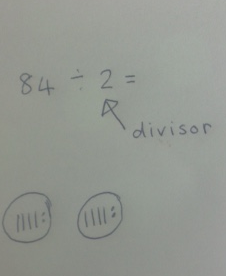 84 ÷ 2 =
divisor